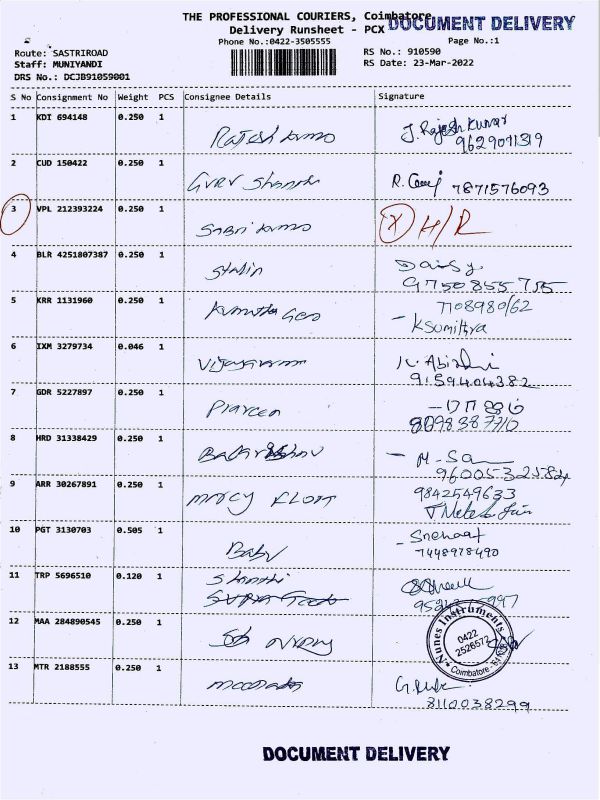 THE PROFESSIONAL COURIERS, Coimbatore
DOCUMENT DELIVERY
Delivery Runsheet - PCX
Phone No.:0422-3505555
Page No.:1
Route: SASTRIROAD
RS No.: 910590
Staff: MUNIYANDI
RS Date: 23-Mar-2022
DRS No.: DCJB91059001
S No Consignment No Weight PCS Consignee Details Signature
1 KDI 694148 0.250 1 Rajesh Kumar J. Rajesh Kumar
9629071319
2 CUD 150422 0.250 1 GVRV Shanthi R. 7871576093
3 VPL 212393224 0.250 1 Sabri Kumar (X) H/R
4 BLR 4251807387 0.250 1 Stalin Daisy
9750855755
5 KRR 1131960 0.250 1 Kumutha Geo 7708980162
- K Sumithra
6 IXM 3279734 0.046 1 K. Abi
9159404382
7 GDR 5227897 0.250 1
8098387710
8 HRD 31338429 0.250 1 - M. Sa
9 ARR 30267891 0.250 1 Mercy 9842549633
10 PGT 3130703 0.505 1 Babu - Snehaa
7448978490
11 TRP 5696510 0.120 1 Shanthi
12 MAA 284890545 0.250 1
Nunes Instruments
0422
2526572
Coimbatore
13 MTR 2188555 0.250 1 G.
8110038299
DOCUMENT DELIVERY